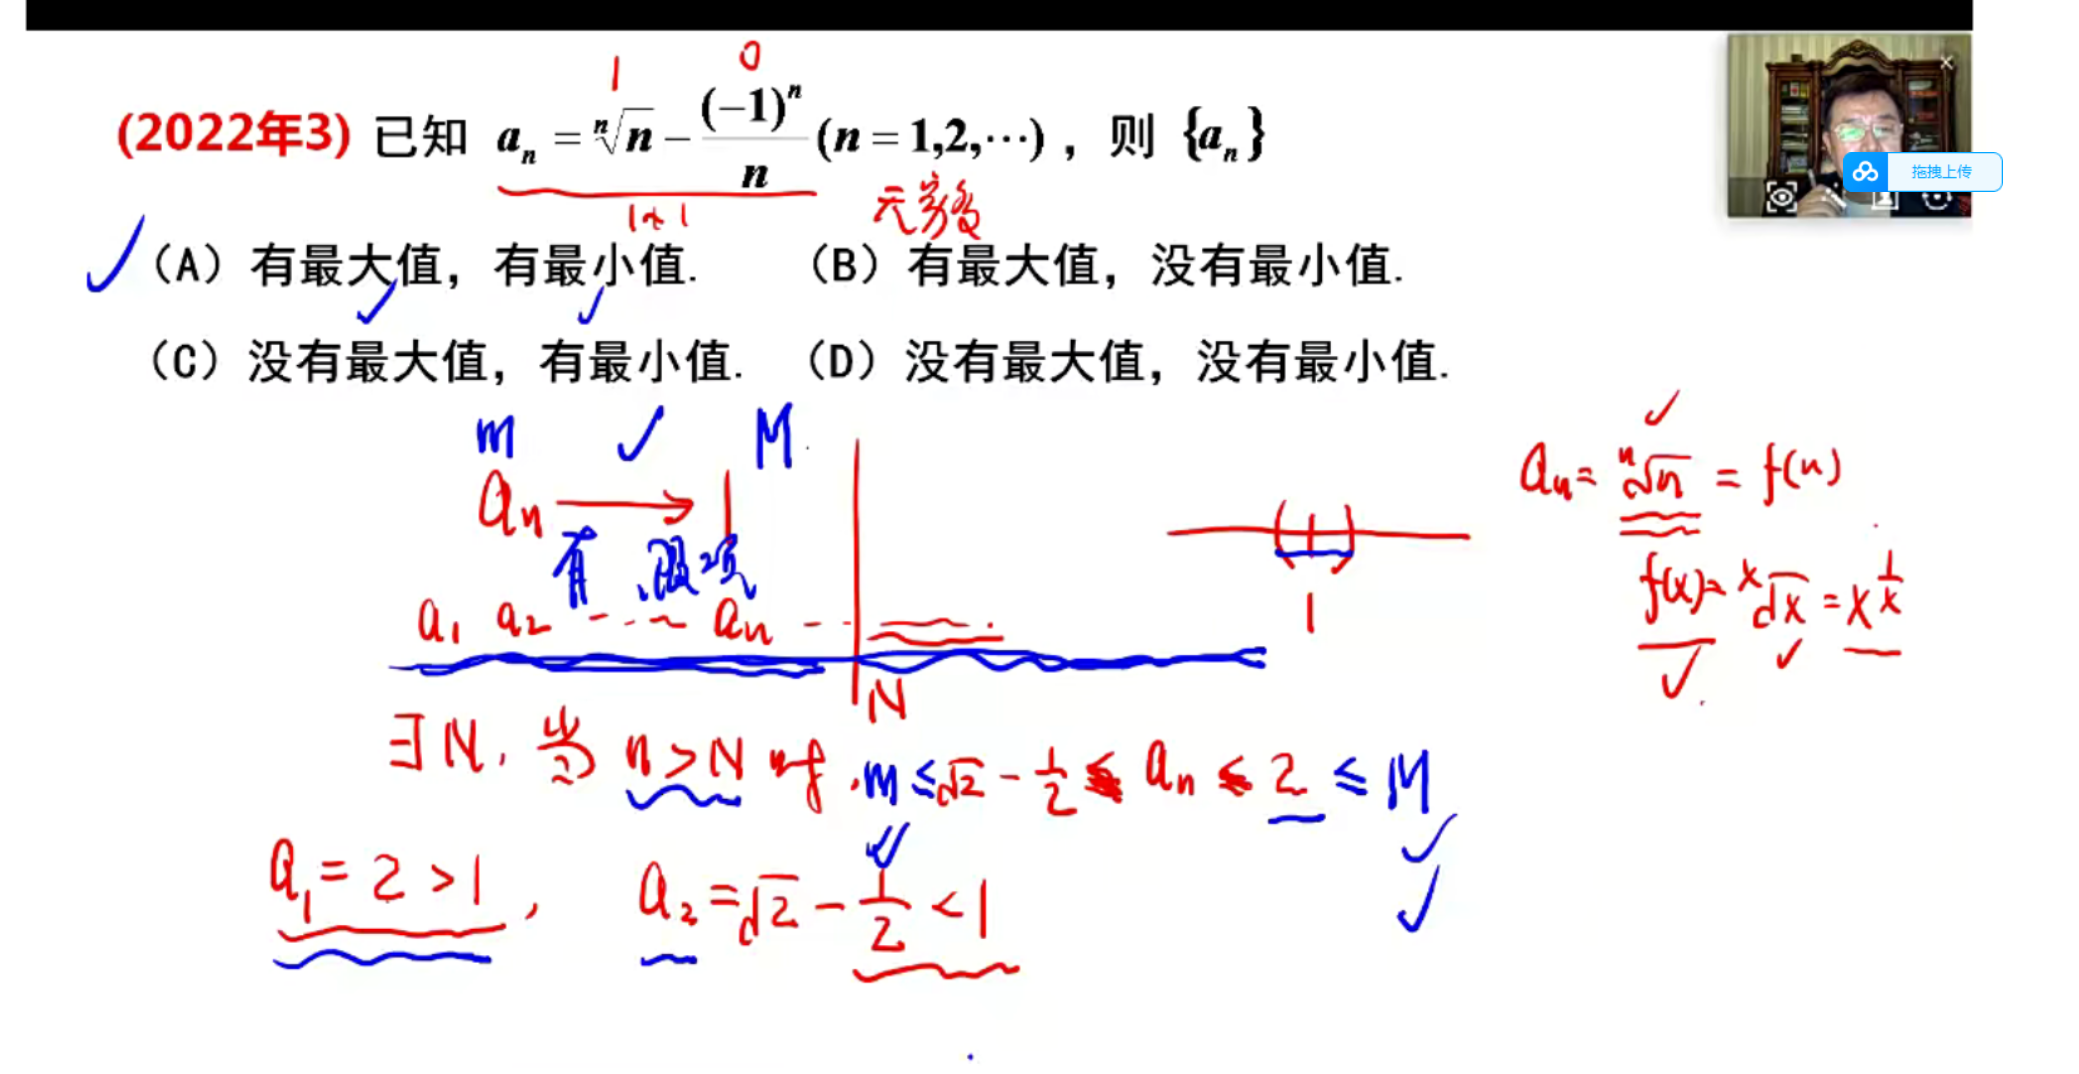 1 0
(2022年3) 已知 aₙ = ⁿ√n − (−1)ⁿ/n (n = 1,2,⋯) ，则 {aₙ}
拖拽上传
无穷多
✓ (A) 有最大值，有最小值. (B) 有最大值，没有最小值.
(C) 没有最大值，有最小值. (D) 没有最大值，没有最小值.
m ✓ M
aₙ → 1
有限项
a₁ a₂ -·-~ aₙ -·-
N
1
aₙ = ⁿ√n = f(n)
f(x) = ˣ√x = x^(1/x)
∃N, 当 n>N 时, m ≤ √2 − 1/2 ≤ aₙ ≤ 2 ≤ M
a₁ = 2 > 1 , a₂ = √2 − 1/2 < 1